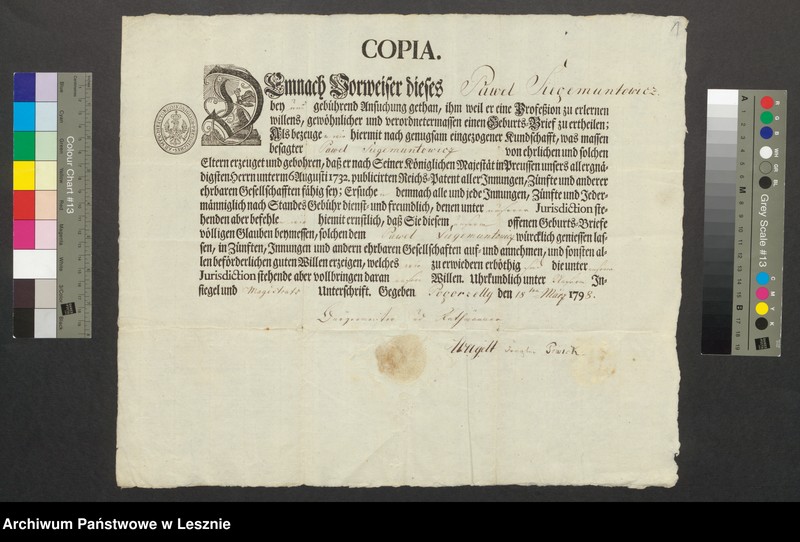 COPIA.
DEmnach Vorweiser dieses Pawel Sugemuntowicz
bey uns gebührend Ansuchung gethan, ihm weil er eine Profeßion zu erlernen
willens, gewöhnlicher und verordnetermassen einen Geburts-Brief zu ertheilen;
Als bezeuge hiermit nach genugsam eingezogener Kundschafft, was massen
besagter Pawel Sugemuntowicz von ehrlichen und solchen
Eltern erzeuget und gebohren, daß er nach Seiner Königlichen Majestät in Preussen unsers allergnä-
digsten Herrn unterm 6 Augusti 1732. publicirten Reichs-Patent aller Innungen, Zünfte und anderer
ehrbaren Gesellschafften fähig sey; Ersuche demnach alle und jede Innungen, Zünfte und Jeder-
männiglich nach Standes Gebühr dienst- und freundlich, denen unter Jurisdiction ste-
henden aber befehle hiemit ernstlich, daß Sie diesem offenen Geburts-Briefe
völligen Glauben beymessen, solchen dem Pawel Sugemuntowicz würcklich geniessen las-
sen, in Zünften, Innungen und andern ehrbaren Gesellschaften auf- und annehmen, und sonsten al-
len beförderlichen guten Willen erzeigen, welches zu erwiedern erböthig die unter
Jurisdiction stehende aber vollbringen daran Willen. Uhrkundlich unter In-
siegel und Magistrats Unterschrift. Gegeben den 18ten May 1798.
Archiwum Państwowe w Lesznie
Colour Chart #13
Grey Scale #13